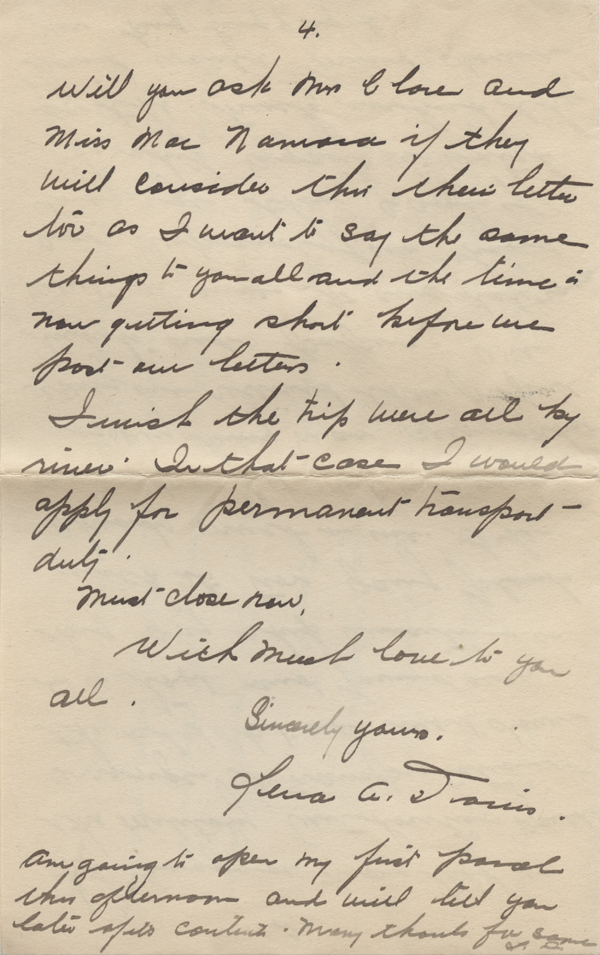 4.
Will you ask Mrs Clare and
Miss Mac Namara if they
will consider this their letter
too as I want to say the same
things to you all and the time is
now getting short before we
post our letters.
I wish the trip were all by
river. In that case I would
apply for permanent transport
duty.
Must close now,
With much love to you
all.
Sincerely yours.
Lena A. Davis.
Am going to open my first parcel
this afternoon and will tell you
later of its contents. Many thanks for same